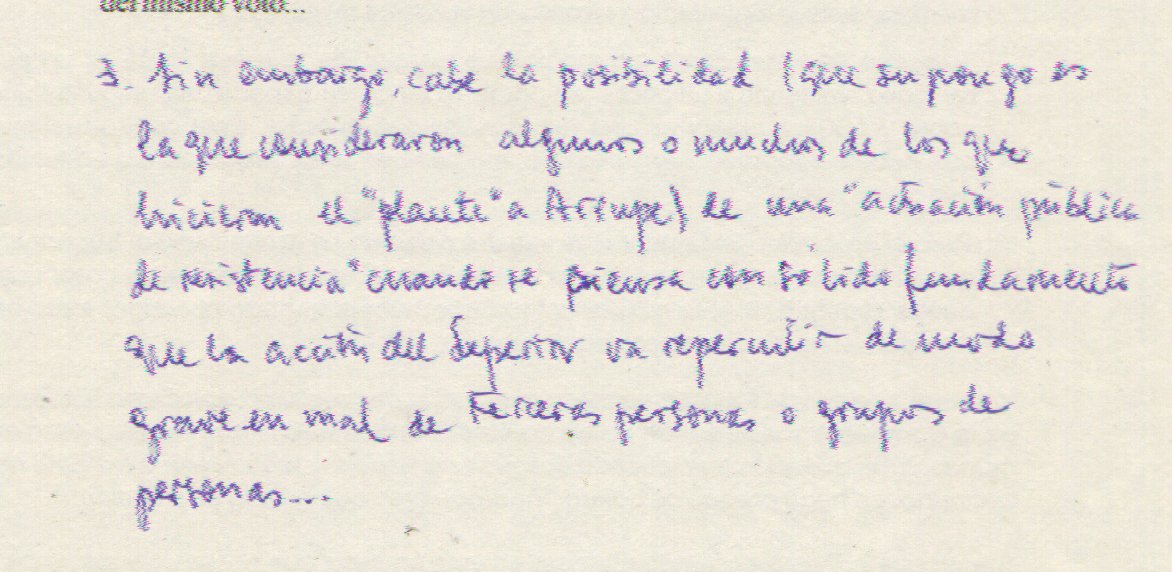 del mismo voto...
3. Sin embargo, cabe la posibilidad (que supongo es
la que consideraron algunos o muchos de los que
hicieron el "plante" a Arrupe) de una "actuación pública
de resistencia" cuando se piensa con sólido fundamento
que la acción del Superior va repercutir de modo
grave en mal de terceras personas o grupos de
personas...